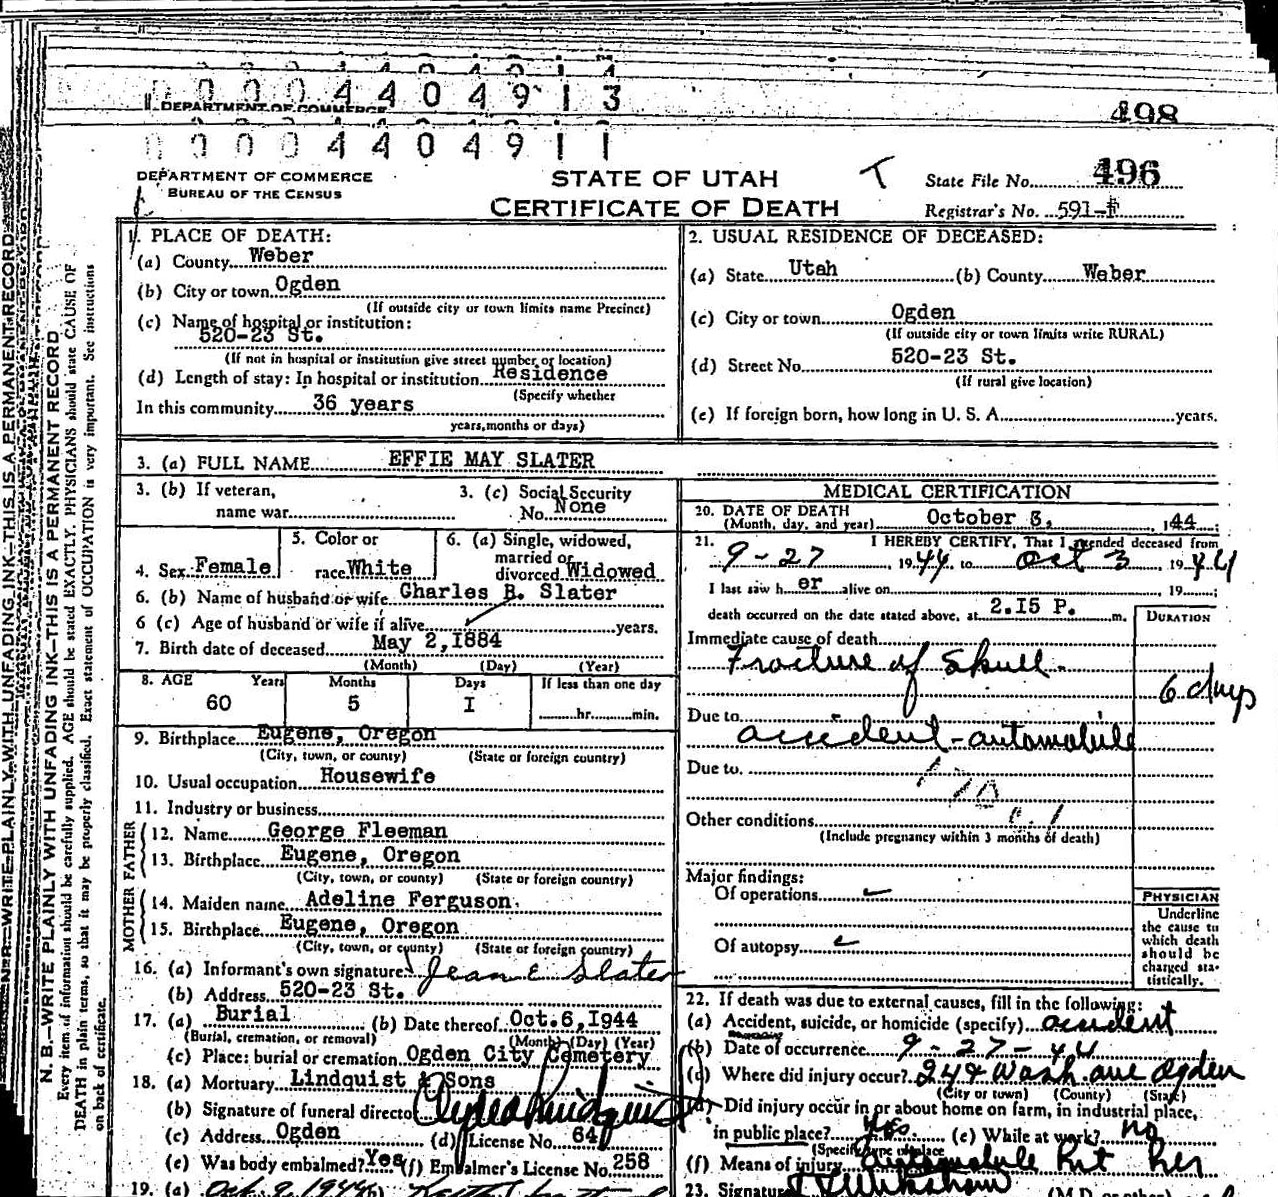 0 0 0 0 4 4 0 4 9 1 3
DEPARTMENT OF COMMERCE
498
0 0 0 0 4 4 0 4 9 1 1
DEPARTMENT OF COMMERCE
BUREAU OF THE CENSUS
STATE OF UTAH
CERTIFICATE OF DEATH
T
State File No. 496
Registrar's No. 591-F
N. B.—WRITE PLAINLY WITH UNFADING INK—THIS IS A PERMANENT RECORD
N. B.—WRITE PLAINLY WITH UNFADING INK—THIS IS A PERMANENT RECORD
Every item of information should be carefully supplied. AGE should be stated EXACTLY. PHYSICIANS should state CAUSE OF
DEATH in plain terms, so that it may be properly classified. Exact statement of OCCUPATION is very important. See instructions
on back of certificate.
1. PLACE OF DEATH:
(a) County Weber
(b) City or town Ogden
(If outside city or town limits name Precinct)
(c) Name of hospital or institution:
520-23 St.
(If not in hospital or institution give street number or location)
(d) Length of stay: In hospital or institution Residence
(Specify whether
In this community 36 years
years, months or days)
2. USUAL RESIDENCE OF DECEASED:
(a) State Utah (b) County Weber
(c) City or town Ogden
(If outside city or town limits write RURAL)
(d) Street No. 520-23 St.
(If rural give location)
(e) If foreign born, how long in U. S. A. years.
3. (a) FULL NAME EFFIE MAY SLATER
3. (b) If veteran,
name war.
3. (c) Social Security
No. None
4. Sex Female
5. Color or
race White
6. (a) Single, widowed,
married or
divorced Widowed
6. (b) Name of husband or wife Charles B. Slater
6 (c) Age of husband or wife if alive years.
7. Birth date of deceased May 2, 1884
(Month) (Day) (Year)
8. AGE Years Months Days If less than one day
60 5 I hr. min.
9. Birthplace Eugene, Oregon
(City, town, or county) (State or foreign country)
10. Usual occupation Housewife
11. Industry or business
FATHER
12. Name George Fleeman
13. Birthplace Eugene, Oregon
(City, town, or county) (State or foreign country)
MOTHER
14. Maiden name Adeline Ferguson
15. Birthplace Eugene, Oregon
(City, town, or county) (State or foreign country)
16. (a) Informant's own signature Jean E Slater
(b) Address 520-23 St.
17. (a) Burial (b) Date thereof Oct. 6, I944
(Burial, cremation, or removal) (Month) (Day) (Year)
(c) Place: burial or cremation Ogden City Cemetery
18. (a) Mortuary Lindquist & Sons
(b) Signature of funeral director
(c) Address Ogden (d) License No. 64
(e) Was body embalmed? Yes (f) Embalmer's License No. 258
19. (a) Oct. 9, 1944 (b)
MEDICAL CERTIFICATION
20. DATE OF DEATH
(Month, day, and year) October 3, 144
21. I HEREBY CERTIFY, That I attended deceased from
9-27, 1944 to Oct 3 1944
I last saw her alive on 19
death occurred on the date stated above, at 2.I5 P. m.
DURATION
Immediate cause of death
Fracture of Skull
6 days
Due to
accident-automobile
Due to
170
Other conditions
(Include pregnancy within 3 months of death)
Major findings:
Of operations
Of autopsy
PHYSICIAN
Underline
the cause to
which death
should be
charged sta-
tistically.
22. If death was due to external causes, fill in the following:
(a) Accident, suicide, or homicide (specify) accident
(b) Date of occurrence 9-27-44
(c) Where did injury occur? 24 & Wash. ave Ogden
(City or town) (County) (State)
(d) Did injury occur in or about home on farm, in industrial place,
in public place? Yes. (e) While at work? no
(Specify type of place
(f) Means of injury automobile hit her
23. Signature (M.D. or other)